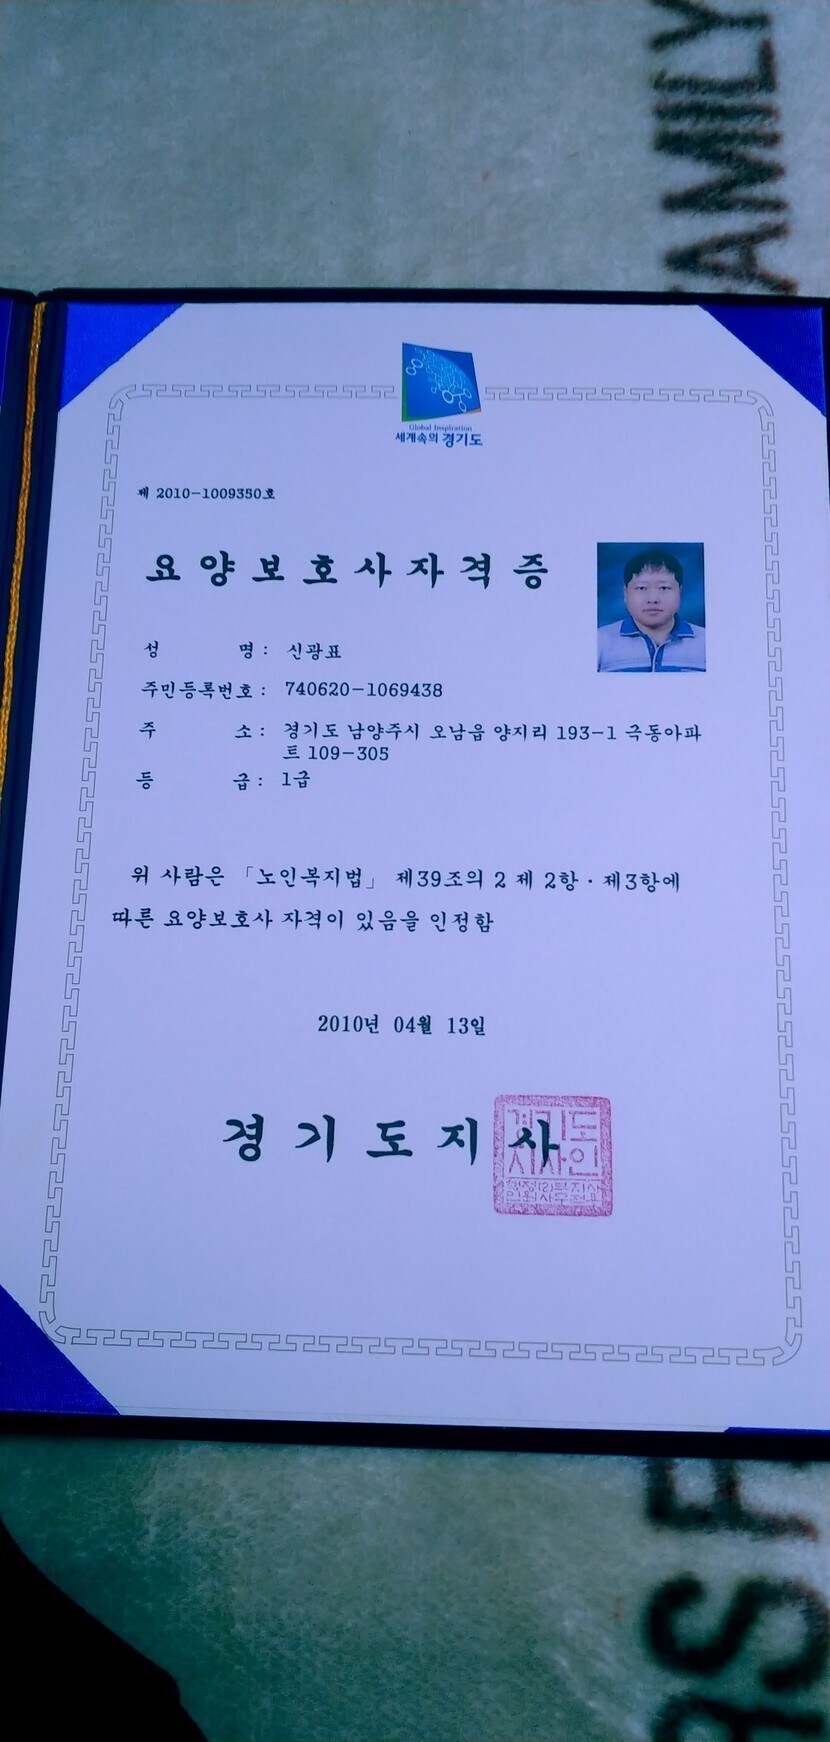 FAMILY
Global Inspiration
세계속의 경기도
제 2010-1009350호
요양보호사자격증
성 명 : 신광표
주민등록번호 : 740620-1069438
주 소 : 경기도 남양주시 오남읍 양지리 193-1 극동아파
트 109-305
등 급 : 1급
위 사람은 「노인복지법」 제39조의 2 제 2항·제3항에
따른 요양보호사 자격이 있음을 인정함
2010년 04월 13일
경기도지사
경기도
지사인